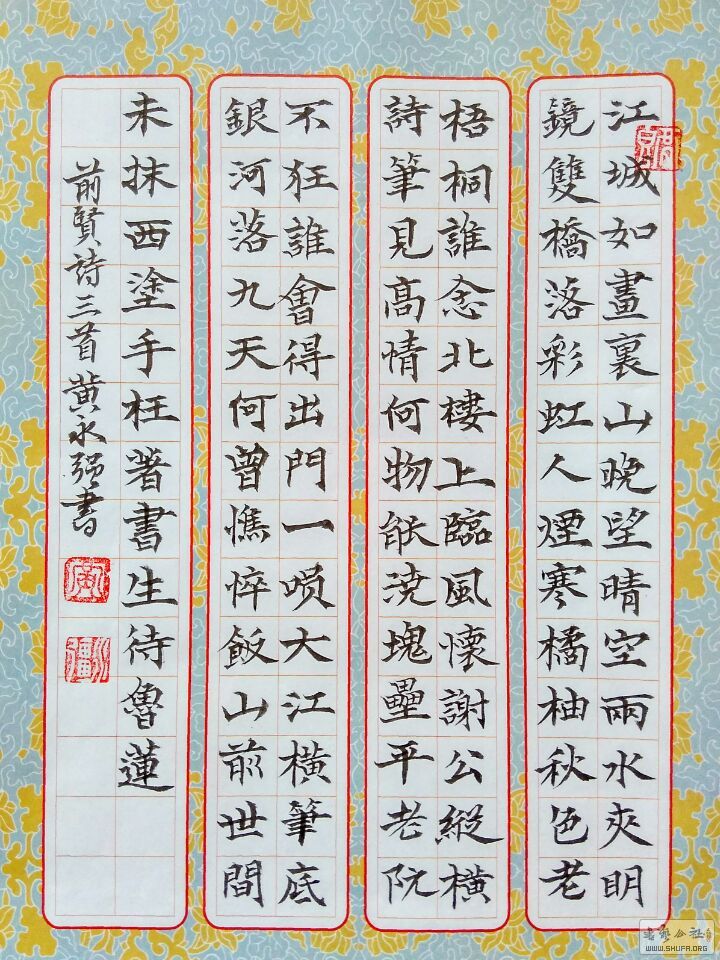 江城如畫裏山晚望晴空兩水夾明
鏡雙橋落彩虹人煙寒橘柚秋色老
梧桐誰念北樓上臨風懷謝公縱橫
詩筆見高情何物能澆塊壘平老阮
不狂誰會得出門一大江橫筆底
銀河落九天何曾憔悴飯山前世間
未抹西塗手枉著書生待魯蓮
前賢诗三首黄永强書
WWW.SHUFA.ORG